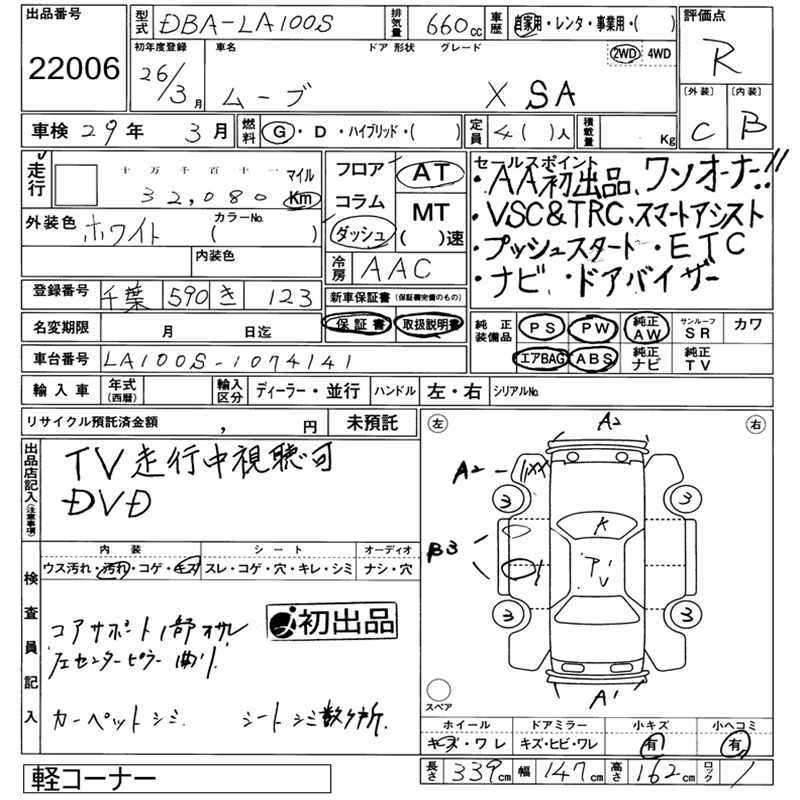 出品番号
22006
型式 DBA-LA100S 排気量 660cc 車歴 自家用・レンタ・事業用・( )
初年度登録 車名 ドア 形状 グレード
26/3月 ムーブ X SA 2WD 4WD
評価点
R
[外装] [内装]
C B
車検 29年 3月 燃料 G・D・ハイブリッド・( ) 定員 4( )人 積載量 Kg
走行 十万千百十一 マイル
32,080 Km
外装色 ホワイト カラーNo. ( )
内装色
フロア
コラム
ダッシュ
AT
MT
( )速
冷房 AAC
セールスポイント
・AA初出品、ワンオーナー!!
・VSC&TRC、スマートアシスト
・プッシュスタート・ETC
・ナビ・ドアバイザー
登録番号 千葉 590 き 123
新車保証書(保証継続のもの)
名変期限 月 日迄
保証書 取扱説明書
純正装備品 PS PW 純正AW サンルーフSR カワ
エアBAG ABS 純正ナビ 純正TV
車台番号 LA100S-1074141
輸入車 年式(西暦) 輸入区分 ディーラー・並行 ハンドル 左・右 シリアルNo.
リサイクル預託済金額 , 円 未預託
出品店記入(注意事項)
TV走行中視聴可
DVD
内装 シート オーディオ
ウス汚れ・汚れ・コゲ・キズ スレ・コゲ・穴・キレ・シミ ナシ・穴
検査員記入
コアサポート1部オサレ
初出品
左センターピラー曲り
カーペットシミ シートシミ数ケ所
左 右
A2
A2
3 3
B3
A1
3 3
スペア
ホイール ドアミラー 小キズ 小ヘコミ
キズ・ワレ キズ・ヒビ・ワレ 有 有
長さ 339cm 幅 147cm 高さ 162cm ロック
軽コーナー